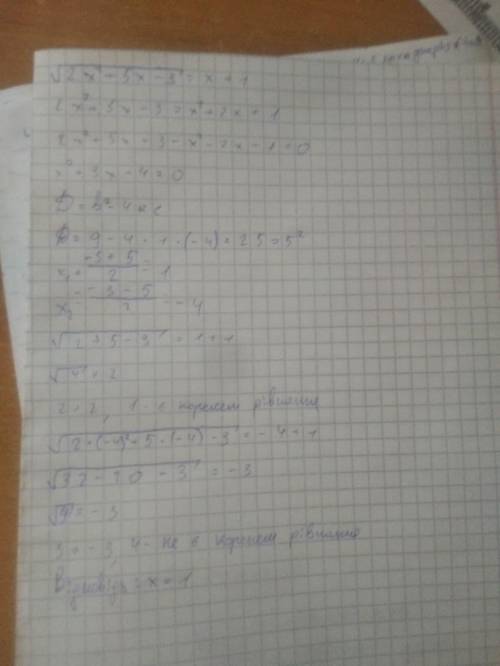 √(2x² + 5x - 3) = x + 1
2x² + 5x - 3 = x² + 2x + 1
2x² + 5x - 3 - x² - 2x - 1 = 0
x² + 3x - 4 = 0
D = b² - 4ac
D = 9 - 4 · 1 · (-4) = 25 = 5²
x₁ = (-3 + 5)/2 = 1
x₂ = (-3 - 5)/2 = -4
√(2 + 5 - 3) = 1 + 1
√4 = 2
2 = 2, 1 - є коренем рівняння
√(2 · (-4)² + 5 · (-4) - 3) = -4 + 1
√(32 - 20 - 3) = -3
√9 = -3
3 ≠ -3, 4 - не є коренем рівняння
Відповідь: x = 1